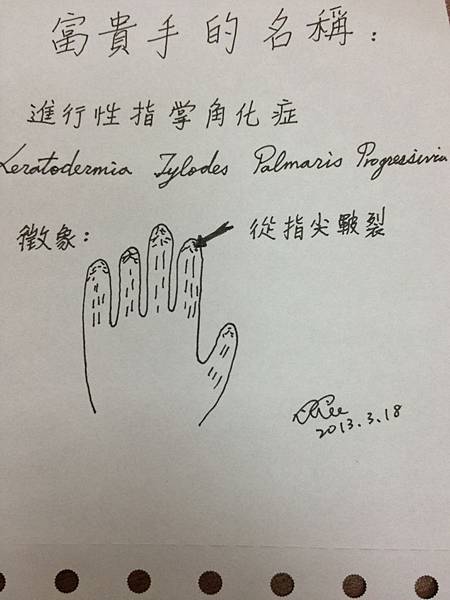 富貴手的名稱：
進行性指掌角化症
Keratodermia Tylodes Palmaris Progressivia
徵象：
從指尖皸裂
2013.3.18